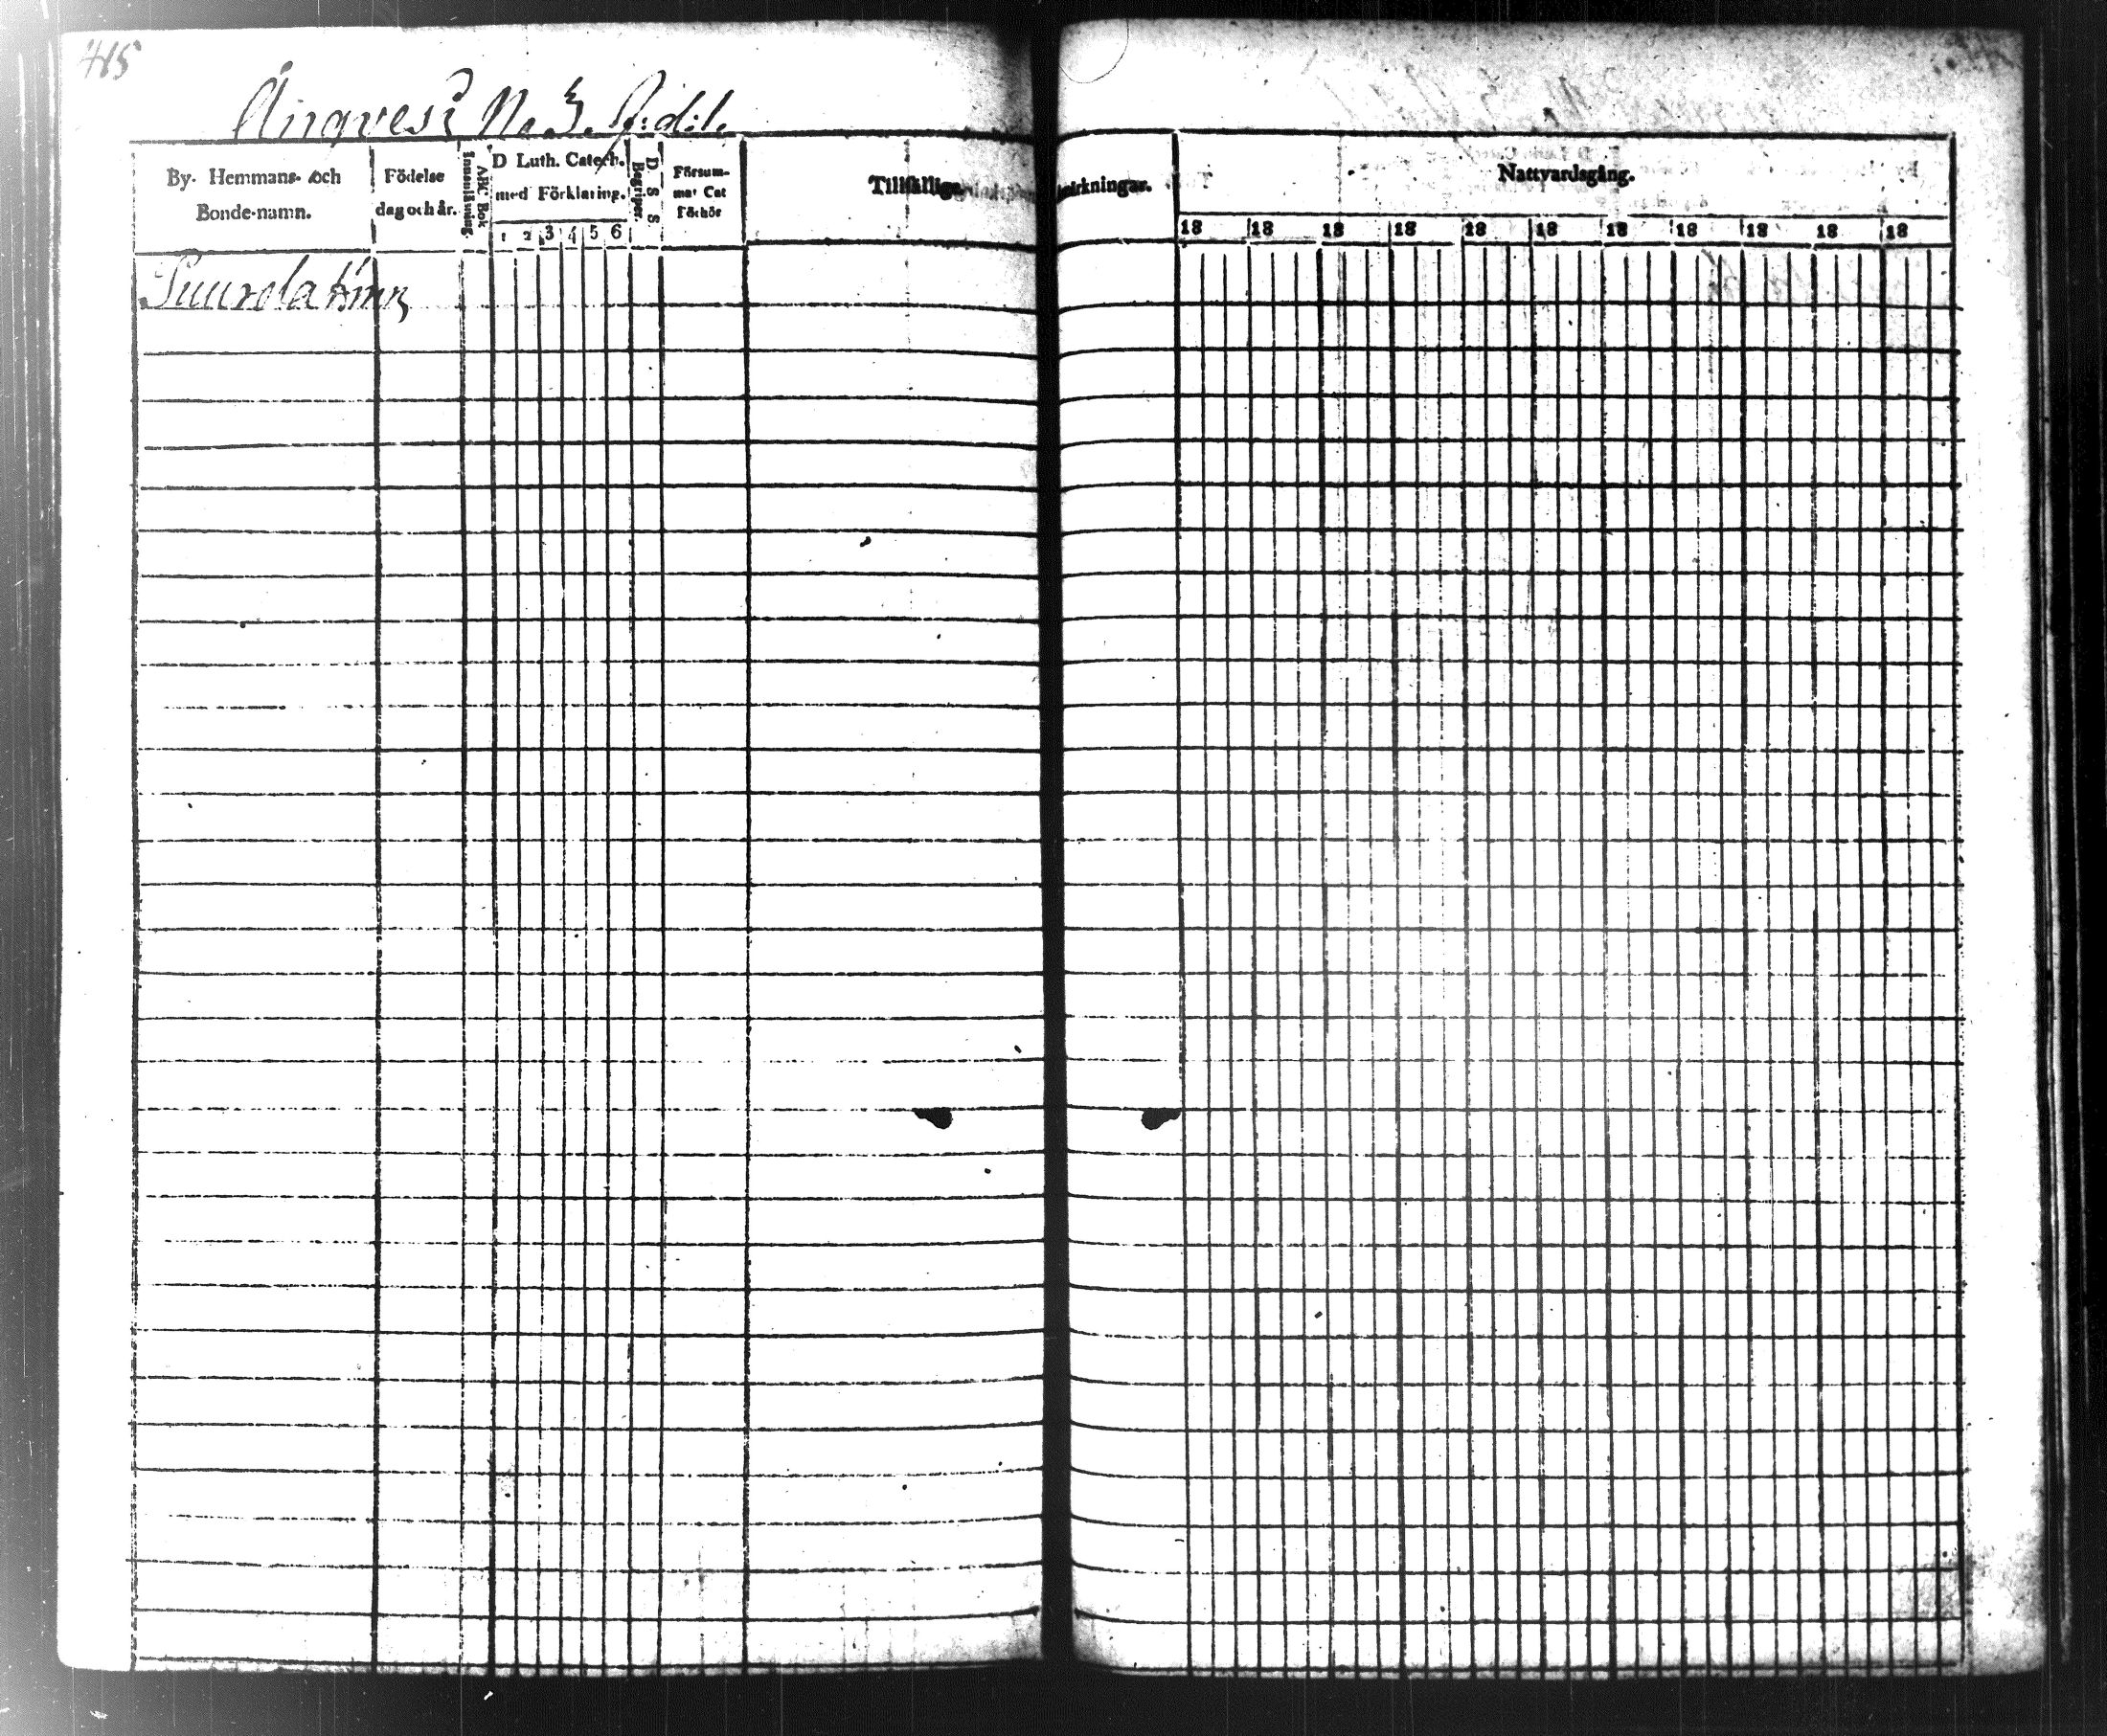 415
Ängvesi No 3.
By- Hemmans- och
Bonde-namn.
Födelse
dag och år.
ABC Bok
Innanläsning.
D Luth. Catech.
med Förklaring.
1 2 3 4 5 6
D. S. S.
Begriper.
Försum-
mat Cat
Förhör
Tillfällige Anmärkningar.
Nattvardsgång.
18 18 18 18 18 18 18 18 18 18 18